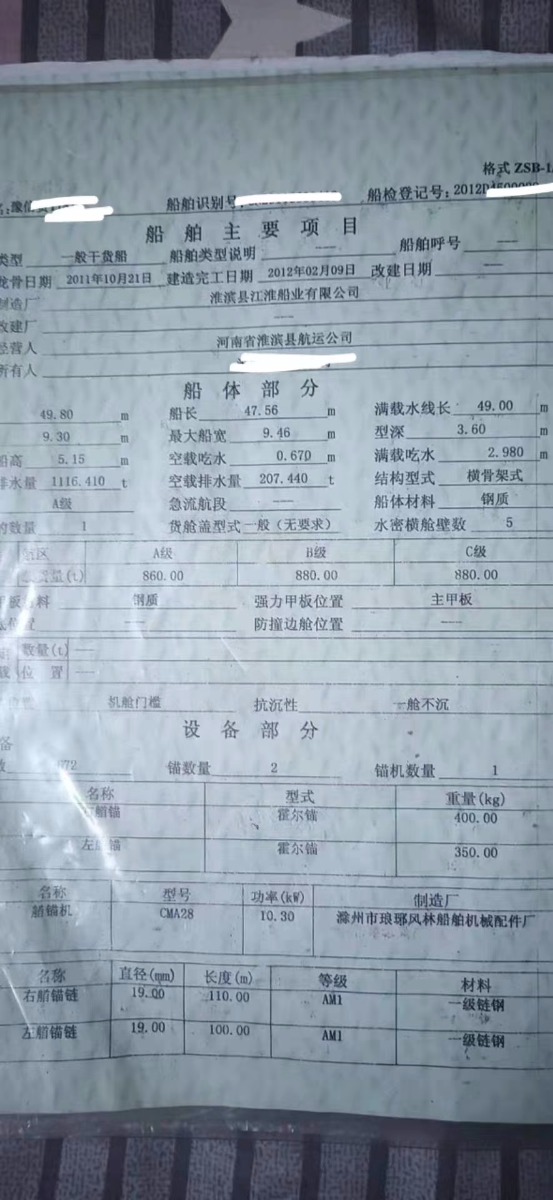 格式 ZSB-1
船舶识别号: 船检登记号: 2012
船舶主要项目
类型 一般干货船 船舶类型说明 —— 船舶呼号 ——
龙骨日期 2011年10月21日 建造完工日期 2012年02月09日 改建日期 ——
制造厂 淮滨县江淮船业有限公司
改建厂 ——
经营人 河南省淮滨县航运公司
所有人
船体部分
49.80 m 船长 47.56 m 满载水线长 49.00 m
9.30 m 最大船宽 9.46 m 型深 3.60 m
船高 5.15 m 空载吃水 0.670 m 满载吃水 2.980 m
排水量 1116.410 t 空载排水量 207.440 t 结构型式 横骨架式
A级 急流航段 —— 船体材料 钢质
的数量 1 货舱盖型式 一般（无要求） 水密横舱壁数 5
航区 A级 B级 C级
量(t) 860.00 880.00 880.00
甲板材料 钢质 强力甲板位置 主甲板
位置 —— 防撞边舱位置 ——
数量(t) ——
位置 ——
机舱门槛 抗沉性 一舱不沉
设备部分
972 锚数量 2 锚机数量 1
名称 型式 重量(kg)
右艏锚 霍尔锚 400.00
左艏锚 霍尔锚 350.00
名称 型号 功率(kW) 制造厂
艏锚机 CMA28 10.30 滁州市琅琊风林船舶机械配件厂
名称 直径(mm) 长度(m) 等级 材料
右艏锚链 19.00 110.00 AM1 一级链钢
左艏锚链 19.00 100.00 AM1 一级链钢